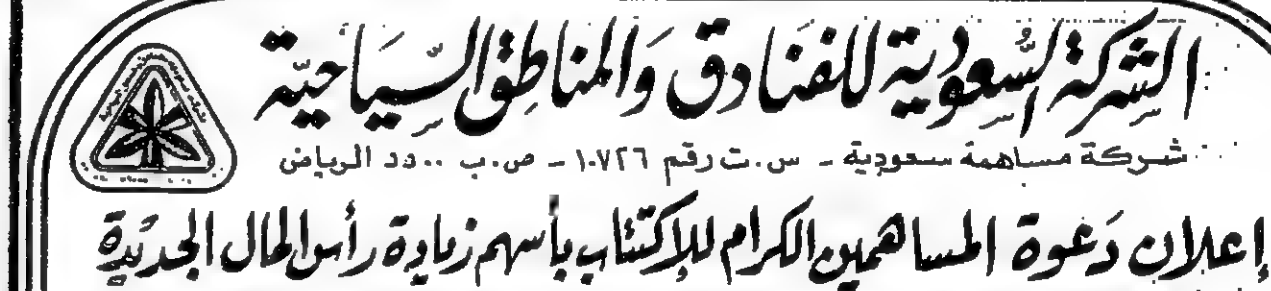 الشركة السعودية للفنادق والمناطق السياحية
شركة مساهمة سعودية - س.ت رقم ١٠٧٢٦ - ص.ب الرياض
إعلان دعوة المساهمين الكرام للإكتتاب بأسهم زيادة رأس المال الجديدة